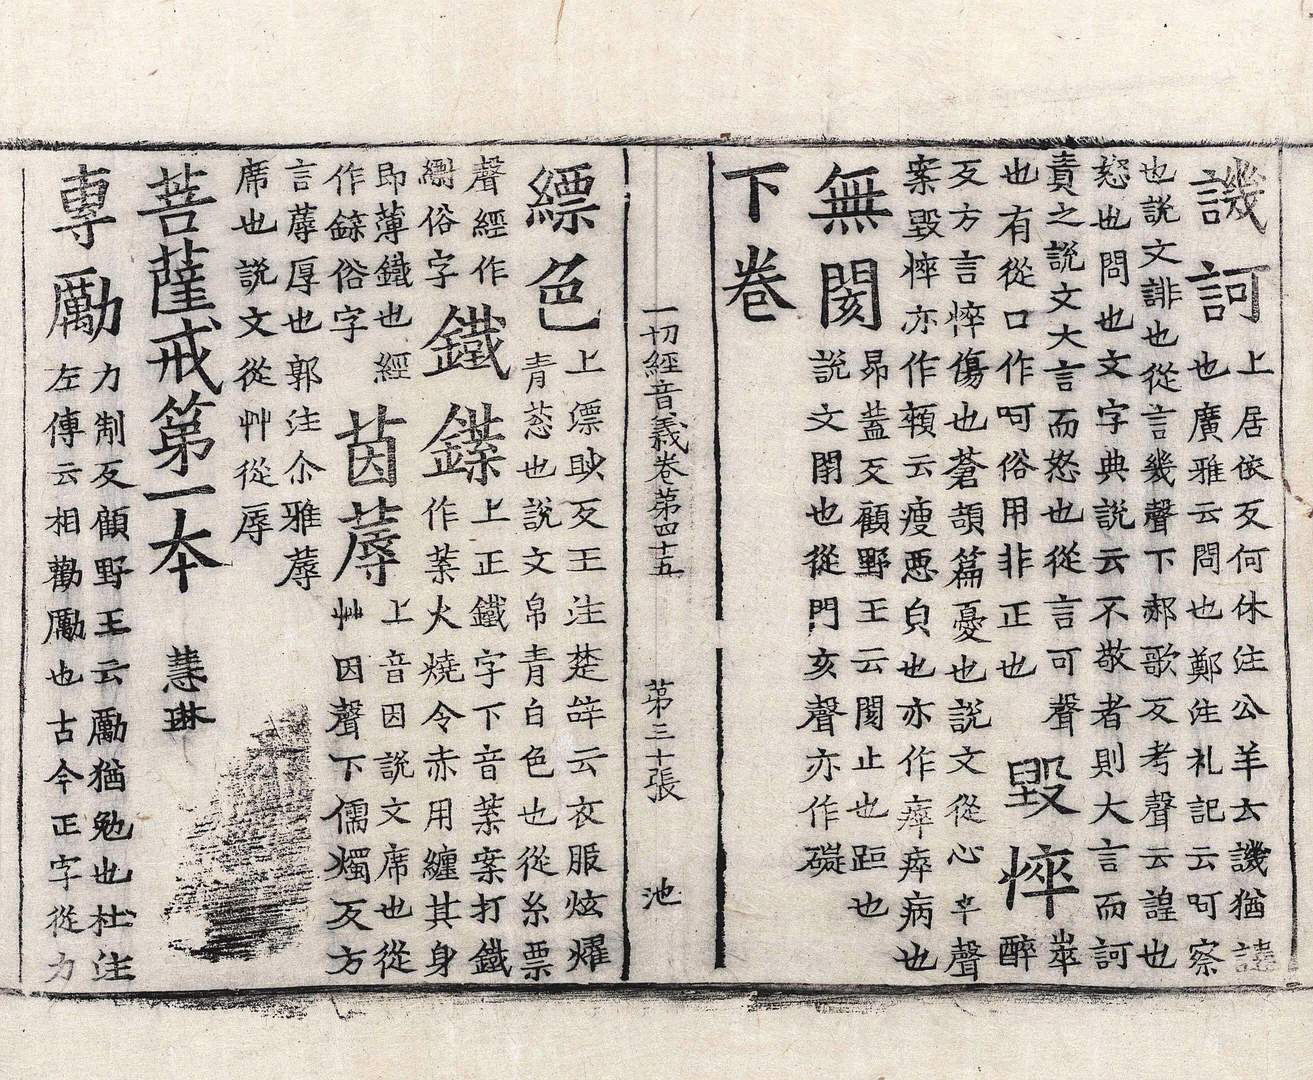 譏訶上居依反何休注公羊云譏猶譴
也廣雅云問也鄭注礼記云呵察
也說文誹也從言幾聲下郝歌反考聲云諻也
怒也問也文字典說云不敬者則大言而訶
責之說文大言而怒也從言可聲
也有從口作呵俗用非正也
毀悴萃
醉
反方言悴傷也蒼頡篇憂也說文從心卒聲
案毀悴亦作顇云瘦惡皃也亦作瘁瘁病也
無閡昂蓋反顧野王云閡止也距也
說文閉也從門亥聲亦作礙
下卷
一切經音義卷第四十五 第三十張 池
縹色上漂眇反王注楚辝云衣服炫燿
青葱也說文帛青白色也從糸票
聲經作
俗字
鐵鍱上正鐵字下音葉案打鐵
作葉火燒令赤用纏其身
即薄鐵也 經
作俗字
茵蓐上音因說文席也從
艸因聲下儒燭反方
言蓐厚也郭注尒雅蓐
席也說文從艸從辱
菩薩戒第一本 慧琳
專勵力制反顧野王云勵猶勉也杜注
左傳云相勸勵也古今正字從力